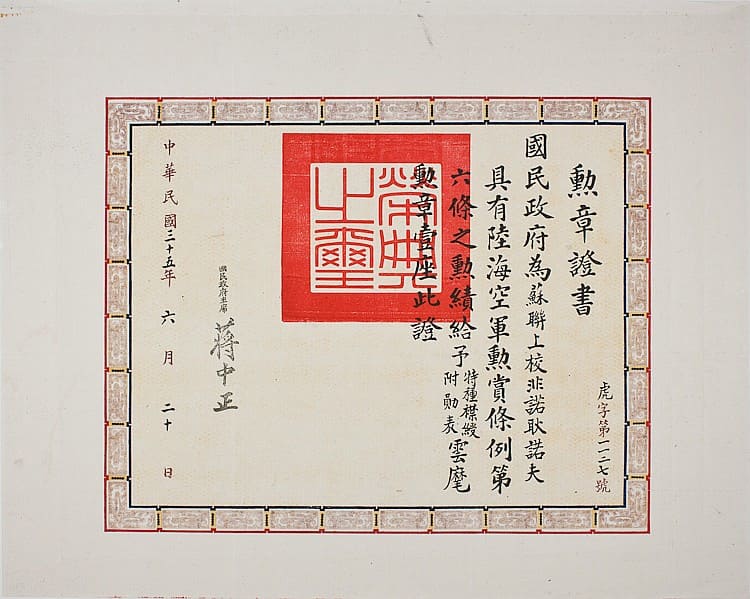 虎字第一一三七號
勳章證書
國民政府為蘇聯上校非諾耿諾夫
具有陸海空軍勳賞條例第
六條之勳績給予特種襟綬附勛表雲麾
勳章壹座此證
榮典之璽
國民政府主席
蔣中正
中華民國三十五年六月二十日